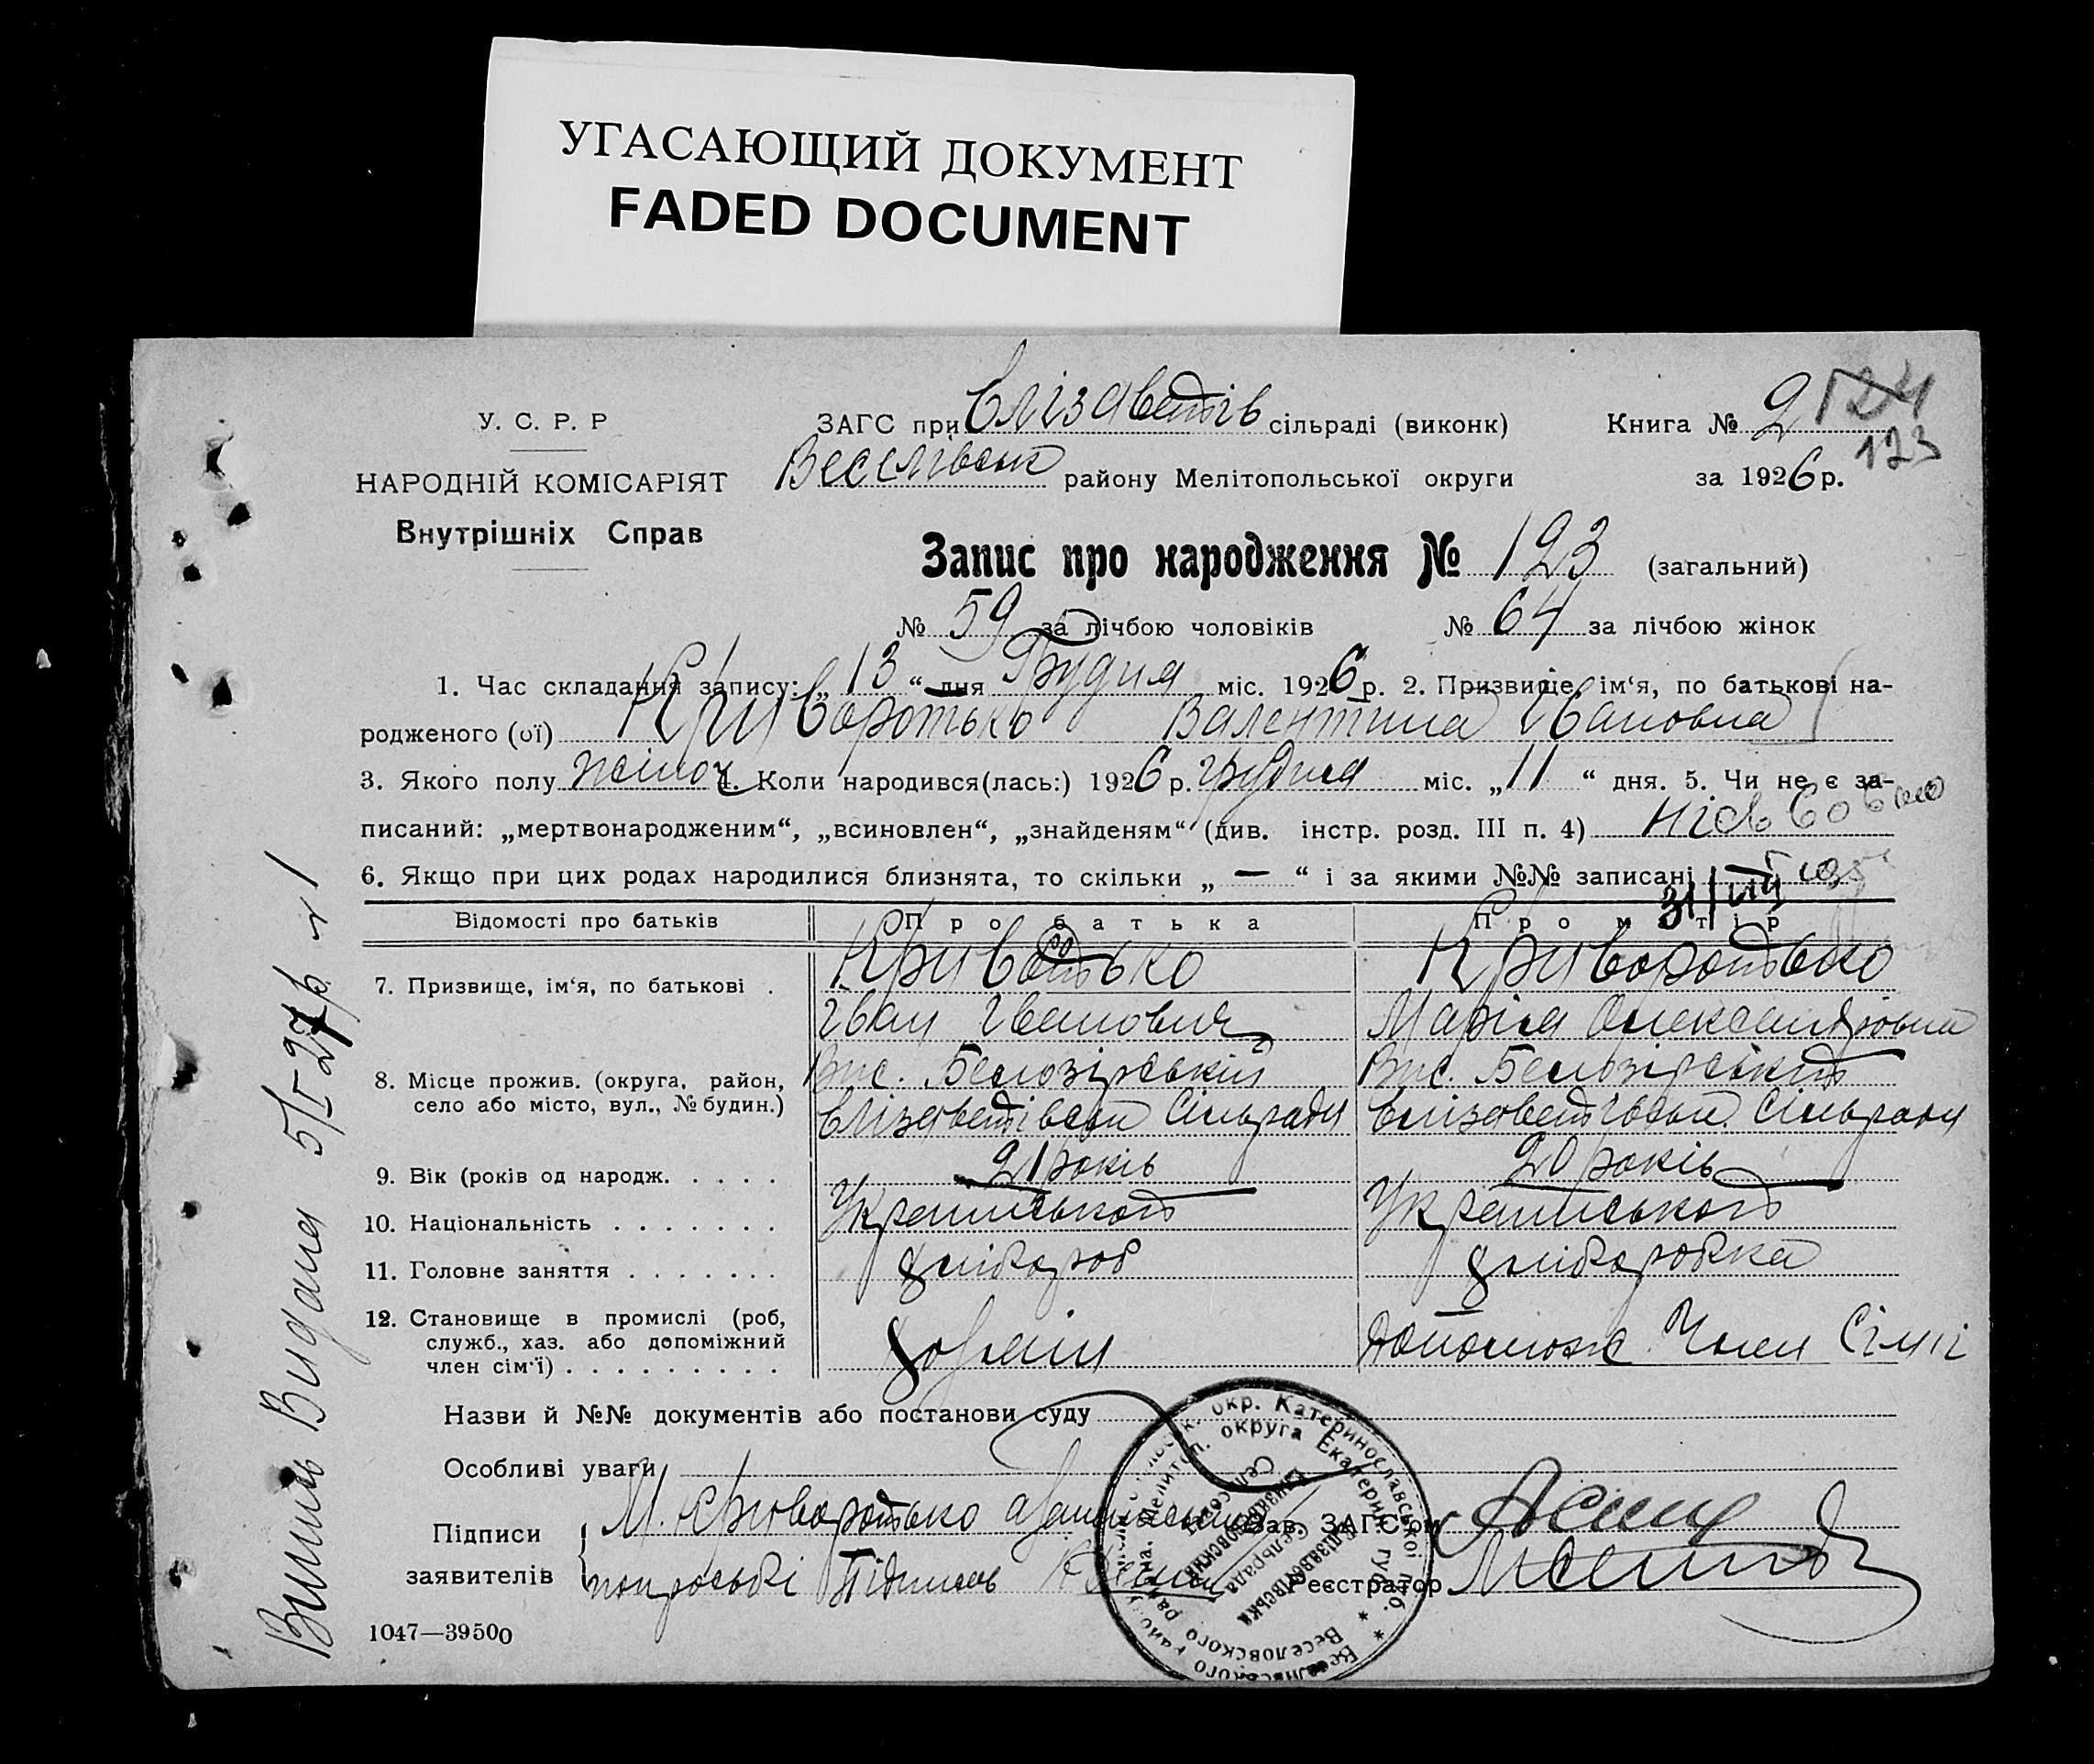 УГАСАЮЩИЙ ДОКУМЕНТ
FADED DOCUMENT
У. С. Р. Р
НАРОДНІЙ КОМІСАРІЯТ
Внутрішніх Справ
ЗАГС при Єлізаветів сільраді (виконк)
Веселівськ району Мелітопольської округи
Книга № 2 124
123
за 1926 р.
Запис про народження № 123 (загальний)
№ 59 за лічбою чоловіків № 64 за лічбою жінок
1. Час складання запису: „ 13 “ дня Грудня міс. 1926 р. 2. Призвище, ім‘я, по батькові на-
родженого (ої) Криворотько Валентина Івановна
3. Якого полу жіноч 4. Коли народився(лась:) 1926 р. грудня міс. „ 11 “ дня. 5. Чи не є за-
писаний: „мертвонародженим“, „всиновлен“, „знайденям“ (див. інстр. розд. III п. 4)
6. Якщо при цих родах народилися близнята, то скільки „ — “ і за якими №№ записані
Відомості про батьків Про батька Про матір
7. Призвище, ім‘я, по батькові . Кривотько ро Криворотько
Іван Іванович Марія Олександровна
8. Місце прожив. (округа, район, Вис. Белозірський Вис. Белозірський
село або місто, вул., № будин.) Єлізаветівськ Сільради Єлізаветівськ. Сільради
9. Вік (років од народж. . . . . 21 років 20 років
10. Національність . . . . . . . Українськой Українськой
11. Головне заняття . . . . . . . хлібороб хліборобка
12. Становище в промислі (роб,
служб., хаз. або допоміжний хозяїн допомож. Член Сімії
член сім‘ї) . . . . . . . . .
Назви й №№ документів або постанови суду
Особливі уваги
Підписи М. Криворотько Зав. ЗАГС‘ом
заявителів попросьбі Підписав Реєстратор
1047—39500
Випись Видана 5/I 27 р. № 1
окр. Катеринославської губ. * Веселівського району
округа Екатерин. губ. * Веселовского района. Мелитоп.
Сельсовет
Елизаветовский
Сельрада
Єлізаветівська